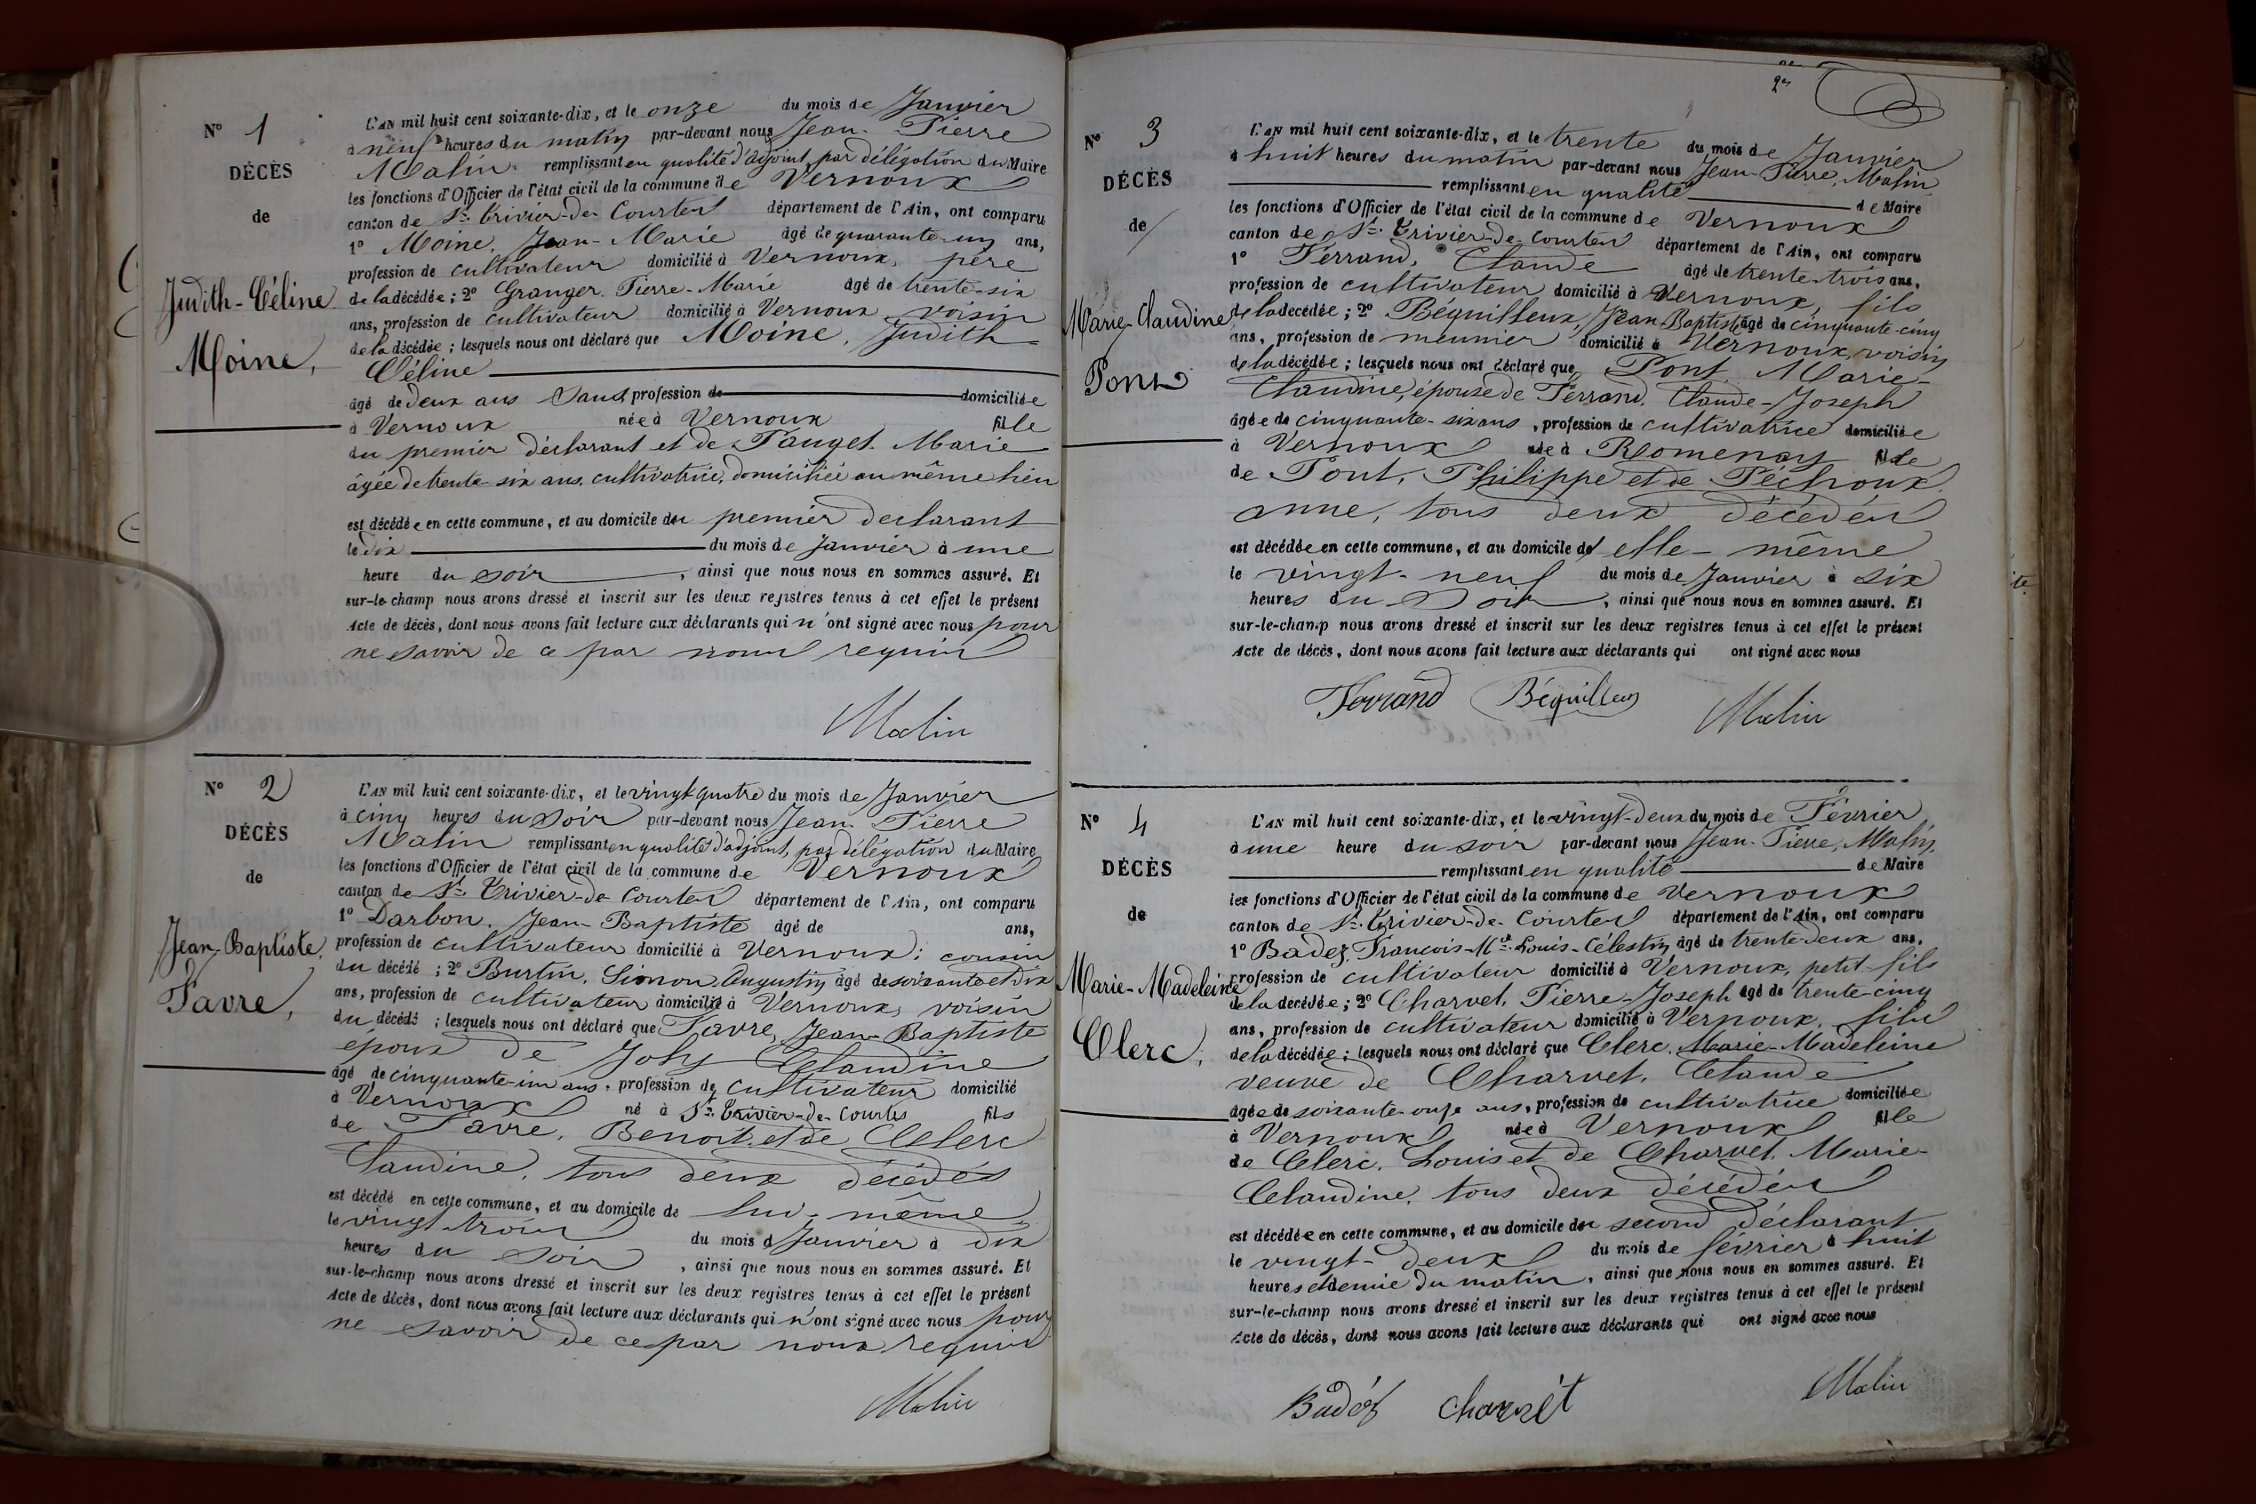 N° 1
DÉCÈS
de
Judith-Céline
Moine,
L'AN mil huit cent soixante-dix, et le onze du mois de Janvier
à neuf heures du matin par-devant nous Jean-Pierre
Malin remplissant en qualité d'adjoint par délégation du Maire
les fonctions d'Officier de l'état civil de la commune de Vernoux
canton de St. Trivier-de-Courtes département de l'Ain, ont comparu
1° Moine, Jean-Marie âgé de quarante-un ans,
profession de cultivateur domicilié à Vernoux, père
de la décédée ; 2° Granger, Pierre-Marie âgé de trente-six
ans, profession de cultivateur domicilié à Vernoux, voisin
de la décédée ; lesquels nous ont déclaré que Moine, Judith-
Céline
âgé de deux ans Sans profession de domiciliée
à Vernoux née à Vernoux fille
du premier déclarant et de Pauget Marie
âgée de trente-six ans, cultivatrice, domiciliée au même lieu
est décédée en cette commune, et au domicile du premier déclarant
le dix du mois de Janvier à une
heure du soir, ainsi que nous nous en sommes assuré. Et
sur-le-champ nous avons dressé et inscrit sur les deux registres tenus à cet effet le présent
Acte de décès, dont nous avons fait lecture aux déclarants qui n'ont signé avec nous pour
ne savoir de ce par nous requis
Malin
N° 2
DÉCÈS
de
Jean-Baptiste
Favre,
L'AN mil huit cent soixante-dix, et le vingt quatre du mois de Janvier
à cinq heures du soir par-devant nous Jean-Pierre
Malin remplissant en qualité d'adjoint, par délégation du Maire
les fonctions d'Officier de l'état civil de la commune de Vernoux
canton de St. Trivier-de-Courtes département de l'Ain, ont comparu
1° Darbon, Jean-Baptiste âgé de ans,
profession de cultivateur domicilié à Vernoux ; cousin
du décédé ; 2° Burtin, Simon Augustin âgé de soixante et dix
ans, profession de cultivateur domicilié à Vernoux, voisin
du décédé ; lesquels nous ont déclaré que Favre, Jean-Baptiste
époux de Joly Claudine
âgé de cinquante-un ans, profession de cultivateur domicilié
à Vernoux né à St. Trivier-de-Courtes fils
de Favre, Benoit et de Clerc
Claudine, tous deux décédés
est décédé en cette commune, et au domicile de lui-même
le vingt-trois du mois d Janvier à dix
heures du soir, ainsi que nous nous en sommes assuré. Et
sur-le-champ nous avons dressé et inscrit sur les deux registres tenus à cet effet le présent
Acte de décès, dont nous avons fait lecture aux déclarants qui n'ont signé avec nous pour
ne savoir de ce par nous requis
Malin
N° 3
DÉCÈS
de
Marie-Claudine
Pont
L'AN mil huit cent soixante-dix, et le trente du mois de Janvier
à huit heures du matin par-devant nous Jean-Pierre, Malin
remplissant en qualité de Maire
les fonctions d'Officier de l'état civil de la commune de Vernoux
canton de St. Trivier-de-Courtes département de l'Ain, ont comparu
1° Ferrand, Claude âgé de trente-trois ans,
profession de cultivateur domicilié à Vernoux, fils
de la décédée ; 2° Béquilleux, Jean-Baptiste âgé de cinquante-cinq
ans, profession de meunier domicilié à Vernoux, voisin
de la décédée ; lesquels nous ont déclaré que Pont Marie-
Claudine, épouse de Ferrand, Claude-Joseph
âgée de cinquante-six ans, profession de cultivatrice domiciliée
à Vernoux née à Romenay fille
de Pont, Philippe et de Péchoux
anne, tous deux décédés
est décédée en cette commune, et au domicile d'elle-même
le vingt-neuf du mois de Janvier à six
heures du Soir, ainsi que nous nous en sommes assuré. Et
sur-le-champ nous avons dressé et inscrit sur les deux registres tenus à cet effet le présent
Acte de décès, dont nous avons fait lecture aux déclarants qui ont signé avec nous
Ferrand Béquilleux Malin
N° 4
DÉCÈS
de
Marie-Madeleine
Clerc,
L'AN mil huit cent soixante-dix, et le vingt-deux du mois de Février
à une heure du soir par-devant nous Jean-Pierre, Malin,
remplissant en qualité de Maire
les fonctions d'Officier de l'état civil de la commune de Vernoux
canton de St. Trivier-de-Courtes département de l'Ain, ont comparu
1° Badez, François-Mel-Louis-Célestin âgé de trente-deux ans,
profession de cultivateur domicilié à Vernoux, petit-fils
de la décédée ; 2° Charvet, Pierre-Joseph âgé de trente-cinq
ans, profession de cultivateur domicilié à Vernoux, fils
de la décédée ; lesquels nous ont déclaré que Clerc, Marie-Madeleine
veuve de Charvet, Claude
âgée de soixante-onze ans, profession de cultivatrice domiciliée
à Vernoux née à Vernoux fille
de Clerc, Louis et de Charvet, Marie-
Claudine, tous deux décédés
est décédée en cette commune, et au domicile du second déclarant
le vingt-deux du mois de février à huit
heures et demie du matin, ainsi que nous nous en sommes assuré. Et
sur-le-champ nous avons dressé et inscrit sur les deux registres tenus à cet effet le présent
Acte de décès, dont nous avons fait lecture aux déclarants qui ont signé avec nous
Badéz Charvét Malin